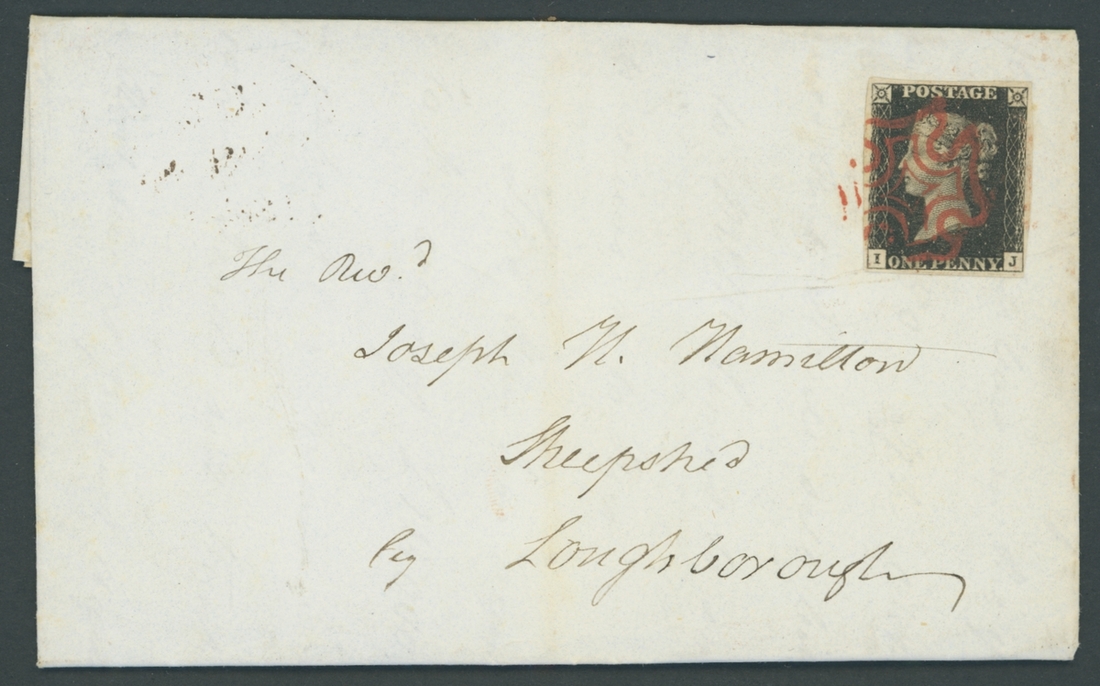 POSTAGE
I ONE PENNY. J
The Revd.
Joseph H. Hamilton
Sheepshed
Loughborough